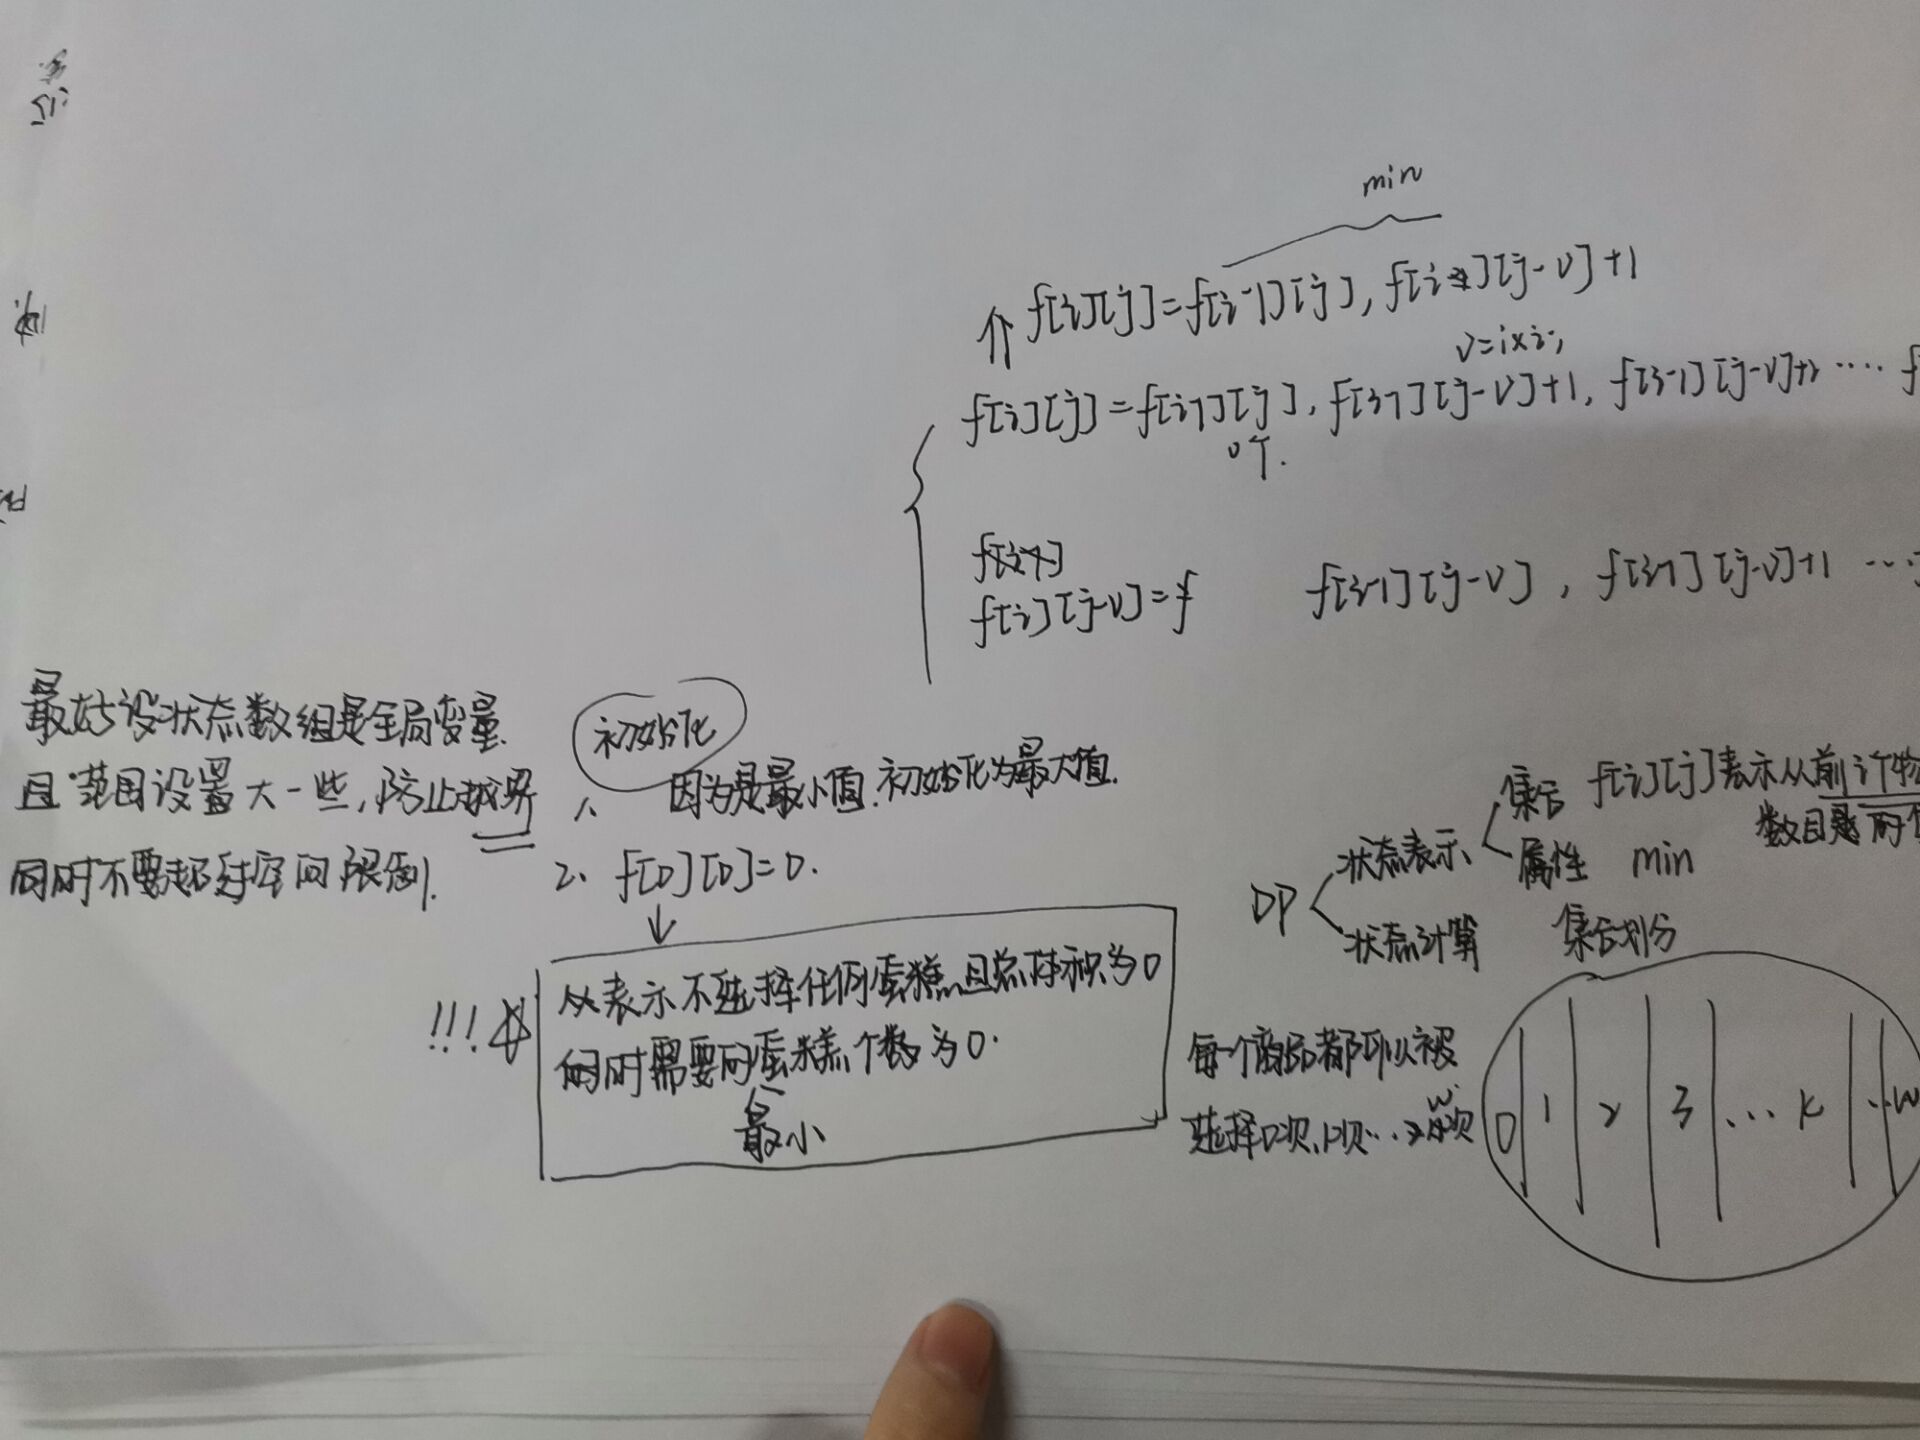 min
f[i][j]=f[i-1][j], f[i][j-v]+1
v=i×i,
f[i][j]=f[i-1][j], f[i-1][j-v]+1, f[i-1][j-v]+2 ···· f
0个.
f[i][j-v]=f f[i-1][j-v], f[i-1][j-v]+1 ····
最好设状态数组是全局变量.
且范围设置大一些,防止越界
同时不要超过空间限制.
初始化
1、因为是最小值.初始化为最大值.
2、f[0][0]=0.
↓
!!!
从表示不选择任何蛋糕且总体积为0
同时需要的蛋糕个数为0.
最小
DP
状态表示
集合 f[i][j]表示从前i个物
数目是
属性 min
状态计算 集合划分
每一个商品都可以被
选择0次,1次··· w次
0 1 2 3 ... k ... w